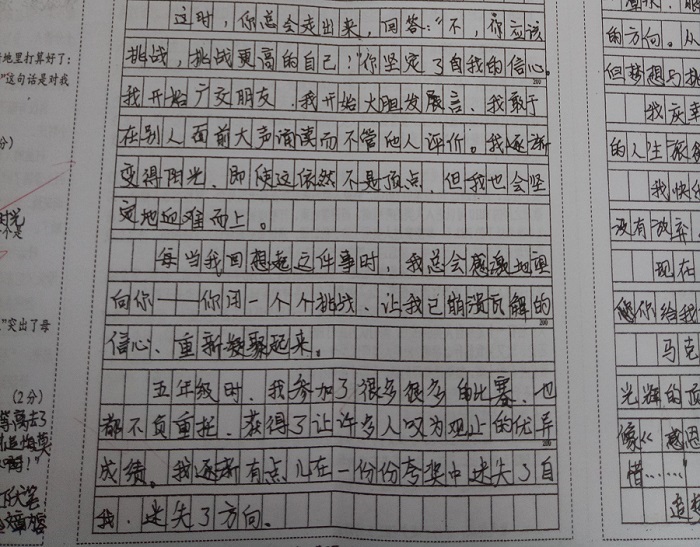 这时，你总会走出来，回答：“不，你应该
挑战，挑战更高的自己！”你坚定了自我的信心。
我开始广交朋友，我开始大胆发展言、我敢于
在别人面前大声诵读而不管他人评价。我逐渐
变得阳光、即使这依然不是顶点，但我也会坚
定地迎难而上。
每当我回想起这件事时，我总会感激地面
向你——你用一个个挑战、让我已崩溃瓦解的
信心、重新凝聚起来。
五年级时，我参加了很多很多的比赛、也
都不负重托、获得了让许多人叹为观止的优异
成绩。我逐渐有点儿在一份份夸奖中迷失了自
我，迷失了方向。
地里打算好了：
”这句话是对我
分）
个是
”突出了母
（2分）
等离去了
的方向。从
但梦想与
我庆幸
的人生旅
我快
没有放弃、
现在
你给我
马克
光辉的顶
像《感恩
惜……
200